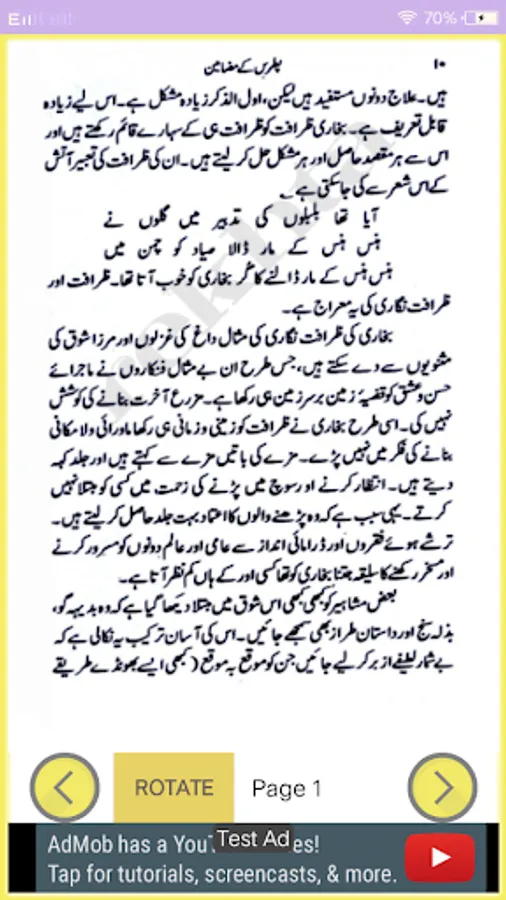 70%
پطرس کے مضامین
۱۰
ہیں۔ علاج دونوں مستفید ہیں لیکن، اول الذکر زیادہ مشکل ہے۔ اس لیے زیادہ
قابل تعریف ہے۔ بخاری ظرافت کو ظرافت ہی کے سہارے قائم رکھتے ہیں اور
اس سے ہر مقصد حاصل اور ہر مشکل حل کر لیتے ہیں۔ ان کی ظرافت کی تعبیر آتش
کے اس شعر سے کی جا سکتی ہے۔
آیا تھا بلبلوں کی تدبیر میں گلوں نے
ہنس ہنس کے مار ڈالا صیاد کو چمن میں
ہنس ہنس کے مار ڈالنے کا گر بخاری کو خوب آتا تھا۔ ظرافت اور
ظرافت نگاری کی یہ معراج ہے۔
بخاری کی ظرافت نگاری کی مثال داغ کی غزلوں اور مرزا شوق کی
مثنویوں سے دے سکتے ہیں، جس طرح ان بے مثال فنکاروں نے ماجرائے
حسن و عشق کو قضیۂ زمین برسر زمین ہی رکھا ہے۔ مزرع آخرت بنانے کی کوشش
نہیں کی۔ اسی طرح بخاری نے ظرافت کو زمینی و زمانی ہی رکھا ماورائی ولامکانی
بنانے کی فکر میں نہیں پڑے۔ مزے کی باتیں مزے سے کہتے ہیں اور جلد کہہ
دیتے ہیں۔ انتظار کرنے اور سوچ میں پڑنے کی زحمت میں کسی کو مبتلا نہیں
کرتے۔ یہی سبب ہے کہ وہ پڑھنے والوں کا اعتماد بہت جلد حاصل کر لیتے ہیں۔
ترشے ہوئے فقروں اور ڈرامائی انداز سے عامی اور عالم دونوں کو مسرور کرنے
اور مسخر رکھنے کا سلیقہ جتنا بخاری کو تھا کسی اور کے ہاں کم نظر آتا ہے۔
بعض مشاہیر کو بھی کبھی اس شوق میں مبتلا دیکھا گیا ہے کہ وہ بدیہہ گو،
بذلہ سنج اور داستان طراز بھی سمجھے جائیں۔ اس کی آسان ترکیب یہ نکالی ہے کہ
بے شمار لطیفے ازبر کر لیے جائیں جن کو موقع بہ موقع (کبھی ایسے بھونڈے طریقے
rekhta
ROTATE
Page 1
AdMob has a You
es!
Test Ad
Tap for tutorials, screencasts, & more.